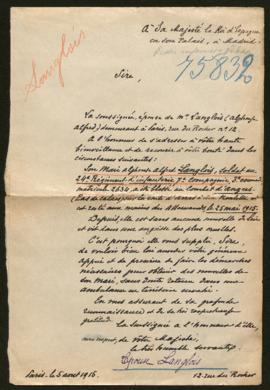 A Sa Majesté le Roi d'Espagne
en son Palais, à Madrid
Langlois
75839
Sire,
La soussignée, épouse de Mr Langlois (Alphonse
Alfred) demeurant à Paris, rue du Rocher no 12
a l'honneur de s'adresser à votre haute
bienveillance et de recourir à votre bonté dans les
circonstances suivantes:
Son Mari Alphonse Alfred Langlois, soldat au
24e Régiment d'infanterie, 7e Compagnie,
matricule 2634, a été blessé au combat d'
(Pas de Calais) et
est resté aux mains des Allemands le 25 mai 1915.
Depuis elle est sans aucune nouvelle de lui
et vit dans une angoisse des plus cruelles.
C'est pourquoi elle vous supplie, Sire,
de vouloir bien lui accorder votre précieux
appui et de prescrire de faire les démarches
nécessaires pour obtenir des nouvelles de
son mari, sans doute retenu dans une
ambulance en territoire envahi.
En vous assurant de sa profonde
reconnaissance et de sa respectueuse
gratitude,
La soussignée a l'honneur d'être,
avec respect, de votre Majesté,
la très humble servante.
Epouse Langlois
Paris. le 5 aout 1915
12 rue du Rocher